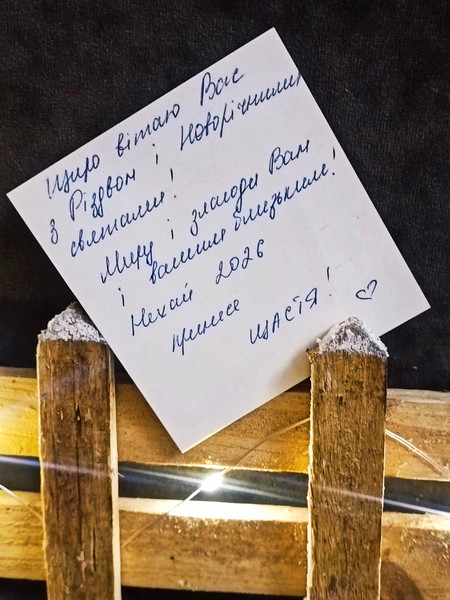 Щиро вітаю Вас
з Різдвом і Новорічними
святами!
Миру і злагоди Вам
і вашим близьким!
Нехай 2026
принесе
ЩАСТЯ!